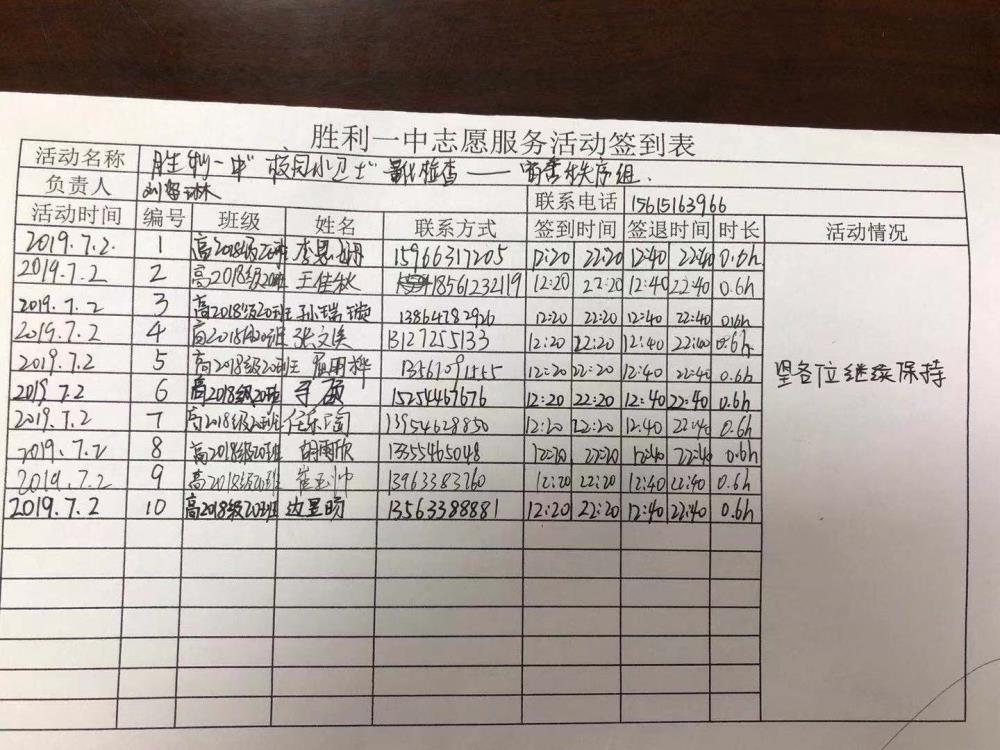 胜利一中志愿服务活动签到表
活动名称 胜利一中"校园小卫士" 检查——宿舍秩序组.
负责人 联系电话 15615163966
活动时间 编号 班级 姓名 联系方式 签到时间 签退时间 时长 活动情况
2019.7.2. 1 高2018级20班 李思娜 15966317205 12:20 22:20 12:40 22:40 0.6h
2019.7.2 2 高2018级20班 王佳秋 18561232119 12:20 22:20 12:40 22:40 0.6h
2019.7.2 3 高2018级20班 孙瑞璇 13864782926 12:20 22:20 12:40 22:40 0.6h
2019.7.2 4 高2018级20班 张文倩 13127255133 12:20 22:20 12:40 22:40 0.6h
2019.7.2 5 高2018级20班 12:20 22:20 12:40 22:40 0.6h
望各位继续保持
2019.7.2 6 高2018级20班 15254467676 12:20 22:20 12:40 22:40 0.6h
2019.7.2 7 高2018级20班 任乐陶 13954628850 12:20 22:20 12:40 22:40 0.6h
2019.7.2 8 高2018级20班 胡雨欣 13355465048 12:20 22:20 12:40 22:40 0.6h
2019.7.2 9 高2018级20班 崔玉帅 13963383760 12:20 22:20 12:40 22:40 0.6h
2019.7.2 10 高2018级20班 边昱旸 13563388881 12:20 22:20 12:40 22:40 0.6h